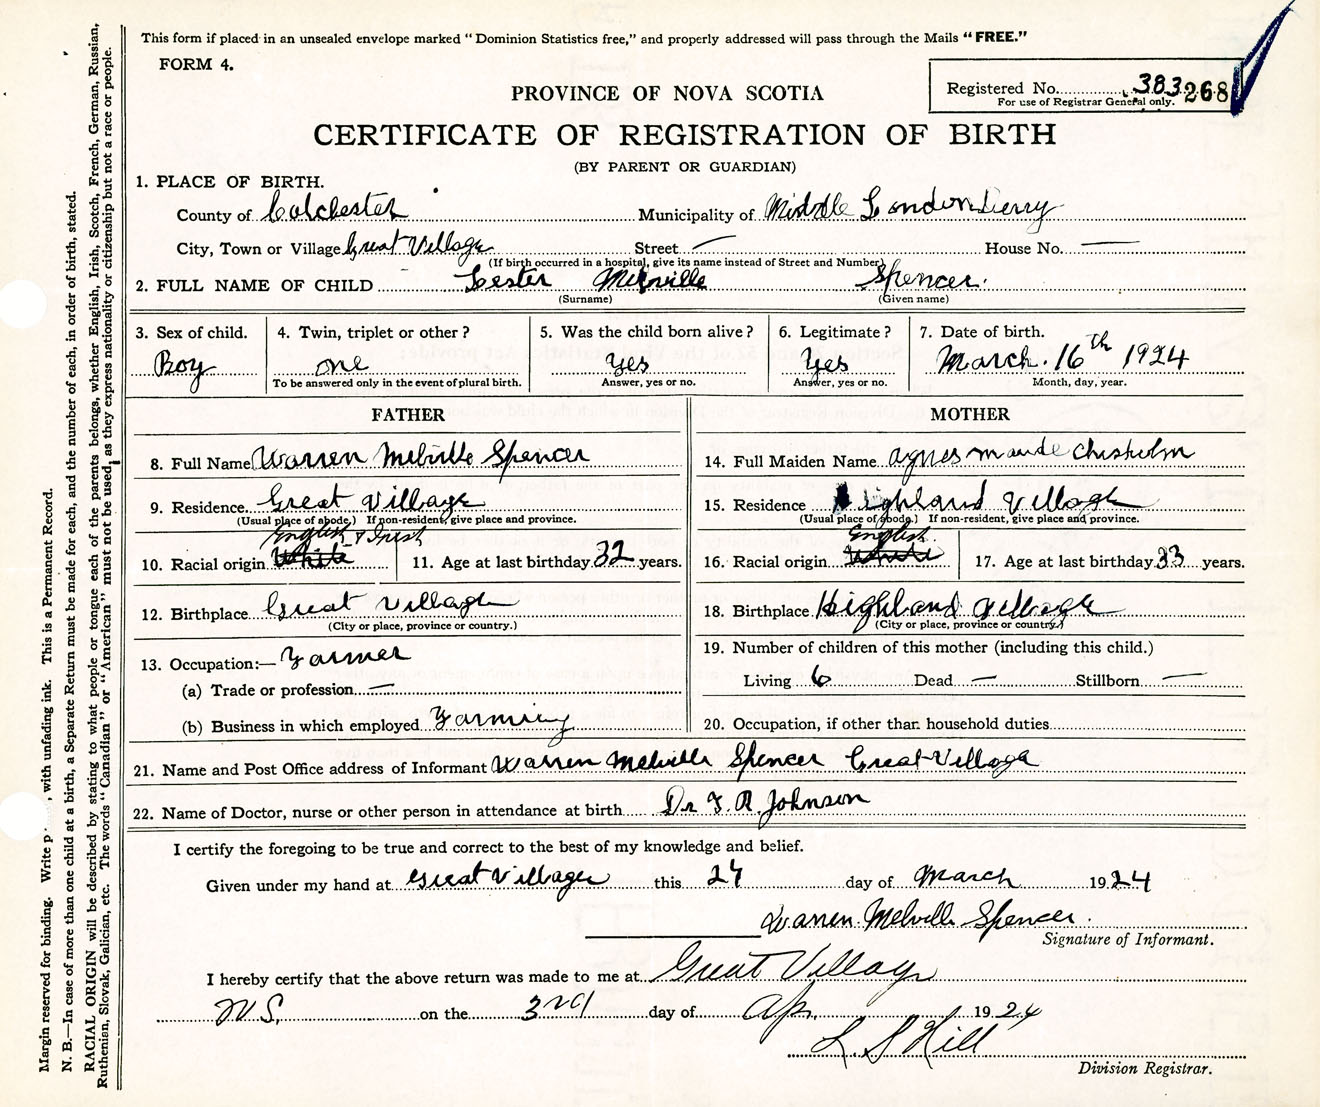 This form if placed in an unsealed envelope marked "Dominion Statistics free," and properly addressed will pass through the Mails "FREE."
FORM 4.
Registered No. 383 268
For use of Registrar General only.
PROVINCE OF NOVA SCOTIA
CERTIFICATE OF REGISTRATION OF BIRTH
(BY PARENT OR GUARDIAN)
1. PLACE OF BIRTH.
County of Colchester Municipality of Middle Londonderry
City, Town or Village Great Village Street — House No. —
(If birth occurred in a hospital, give its name instead of Street and Number)
2. FULL NAME OF CHILD Lester Melville Spencer.
(Surname) (Given name)
3. Sex of child. 4. Twin, triplet or other? 5. Was the child born alive? 6. Legitimate? 7. Date of birth.
Boy one Yes Yes March. 16th 1924
To be answered only in the event of plural birth. Answer, yes or no. Answer, yes or no. Month, day, year.
FATHER
8. Full Name Warren Melville Spencer
9. Residence Great Village
(Usual place of abode.) If non-resident, give place and province.
English & Irish
10. Racial origin White 11. Age at last birthday 32 years.
12. Birthplace Great Village
(City or place, province or country.)
13. Occupation:— Farmer
(a) Trade or profession —
(b) Business in which employed Farming
MOTHER
14. Full Maiden Name Agnes Maude Chisholm
15. Residence Highland Village
(Usual place of abode.) If non-resident, give place and province.
English
16. Racial origin White 17. Age at last birthday 33 years.
18. Birthplace Highland Village
(City or place, province or country.)
19. Number of children of this mother (including this child.)
Living 6 Dead — Stillborn —
20. Occupation, if other than household duties
21. Name and Post Office address of Informant Warren Melville Spencer Great Village
22. Name of Doctor, nurse or other person in attendance at birth Dr F. R. Johnson
I certify the foregoing to be true and correct to the best of my knowledge and belief.
Given under my hand at Great Village this 24 day of March 1924
Warren Melville Spencer.
Signature of Informant.
I hereby certify that the above return was made to me at Great Village
N.S. on the 3rd day of Ap. 1924
L S Hill
Division Registrar.
Margin reserved for binding. Write p , with unfading ink. This is a Permanent Record.
N. B.—In case of more than one child at a birth, a Separate Return must be made for each, and the number of each, in order of birth, stated.
RACIAL ORIGIN will be described by stating to what people or tongue each of the parents belongs, whether English, Irish, Scotch, French, German, Russian,
Ruthenian, Slovak, Galician, etc. The words "Canadian" or "American" must not be used, as they express nationality or citizenship but not a race or people.